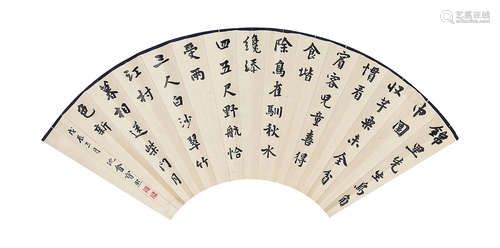 錦里先生烏角
巾園
收芋栗未全貧
慣看
賓客兒童喜得
食堦
除鳥雀馴秋水
纔添
四五尺野航恰
受兩
三人白沙翠竹
江村
暮相送柴門月
色新
戊辰